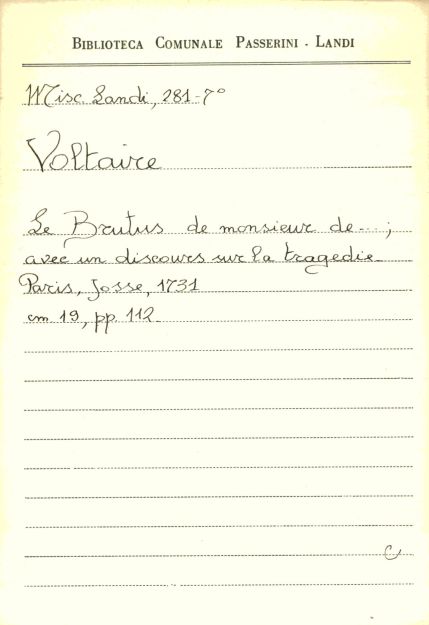 BIBLIOTECA COMUNALE PASSERINI - LANDI
Misc. Landi, 281-7°
Voltaire
Le Brutus de monsieur de ... ;
avec un discours sur la tragedie.
Paris, Josse, 1731
cm 19, pp. 112.
C